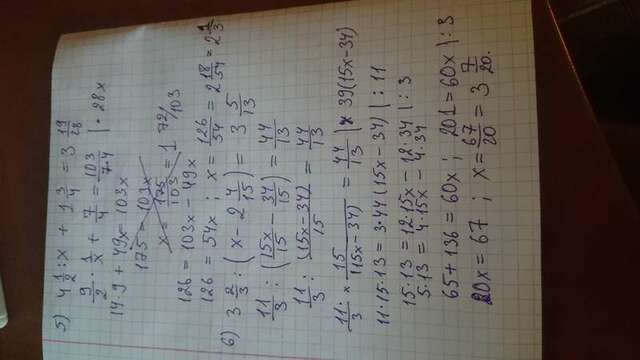 5) 4 1/2 : x + 1 3/4 = 3 19/28
9/2 · 1/x + 7/4 = 103/7·4 | · 28x
14·9 + 49x = 103x
175 = 103x
x = 175/103 = 1 72/103
126 = 103x - 49x
126 = 54x ; x = 126/54 = 2 18/54 = 2 1/3
6) 3 2/3 : (x - 2 4/15) = 3 5/13
11/3 : (15x/15 - 34/15) = 44/13
11/3 : (15x-34)/15 = 44/13
11·/3 × 15/(15x-34) = 44/13 | × 39(15x-34)
11·15·13 = 3·44(15x-34) | : 11
15·13 = 12·15x - 12·34 | : 3
5·13 = 4·15x - 4·34
65+136 = 60x ; 201 = 60x | : 3
20x = 67 ; x = 67/20 = 3 7/20.